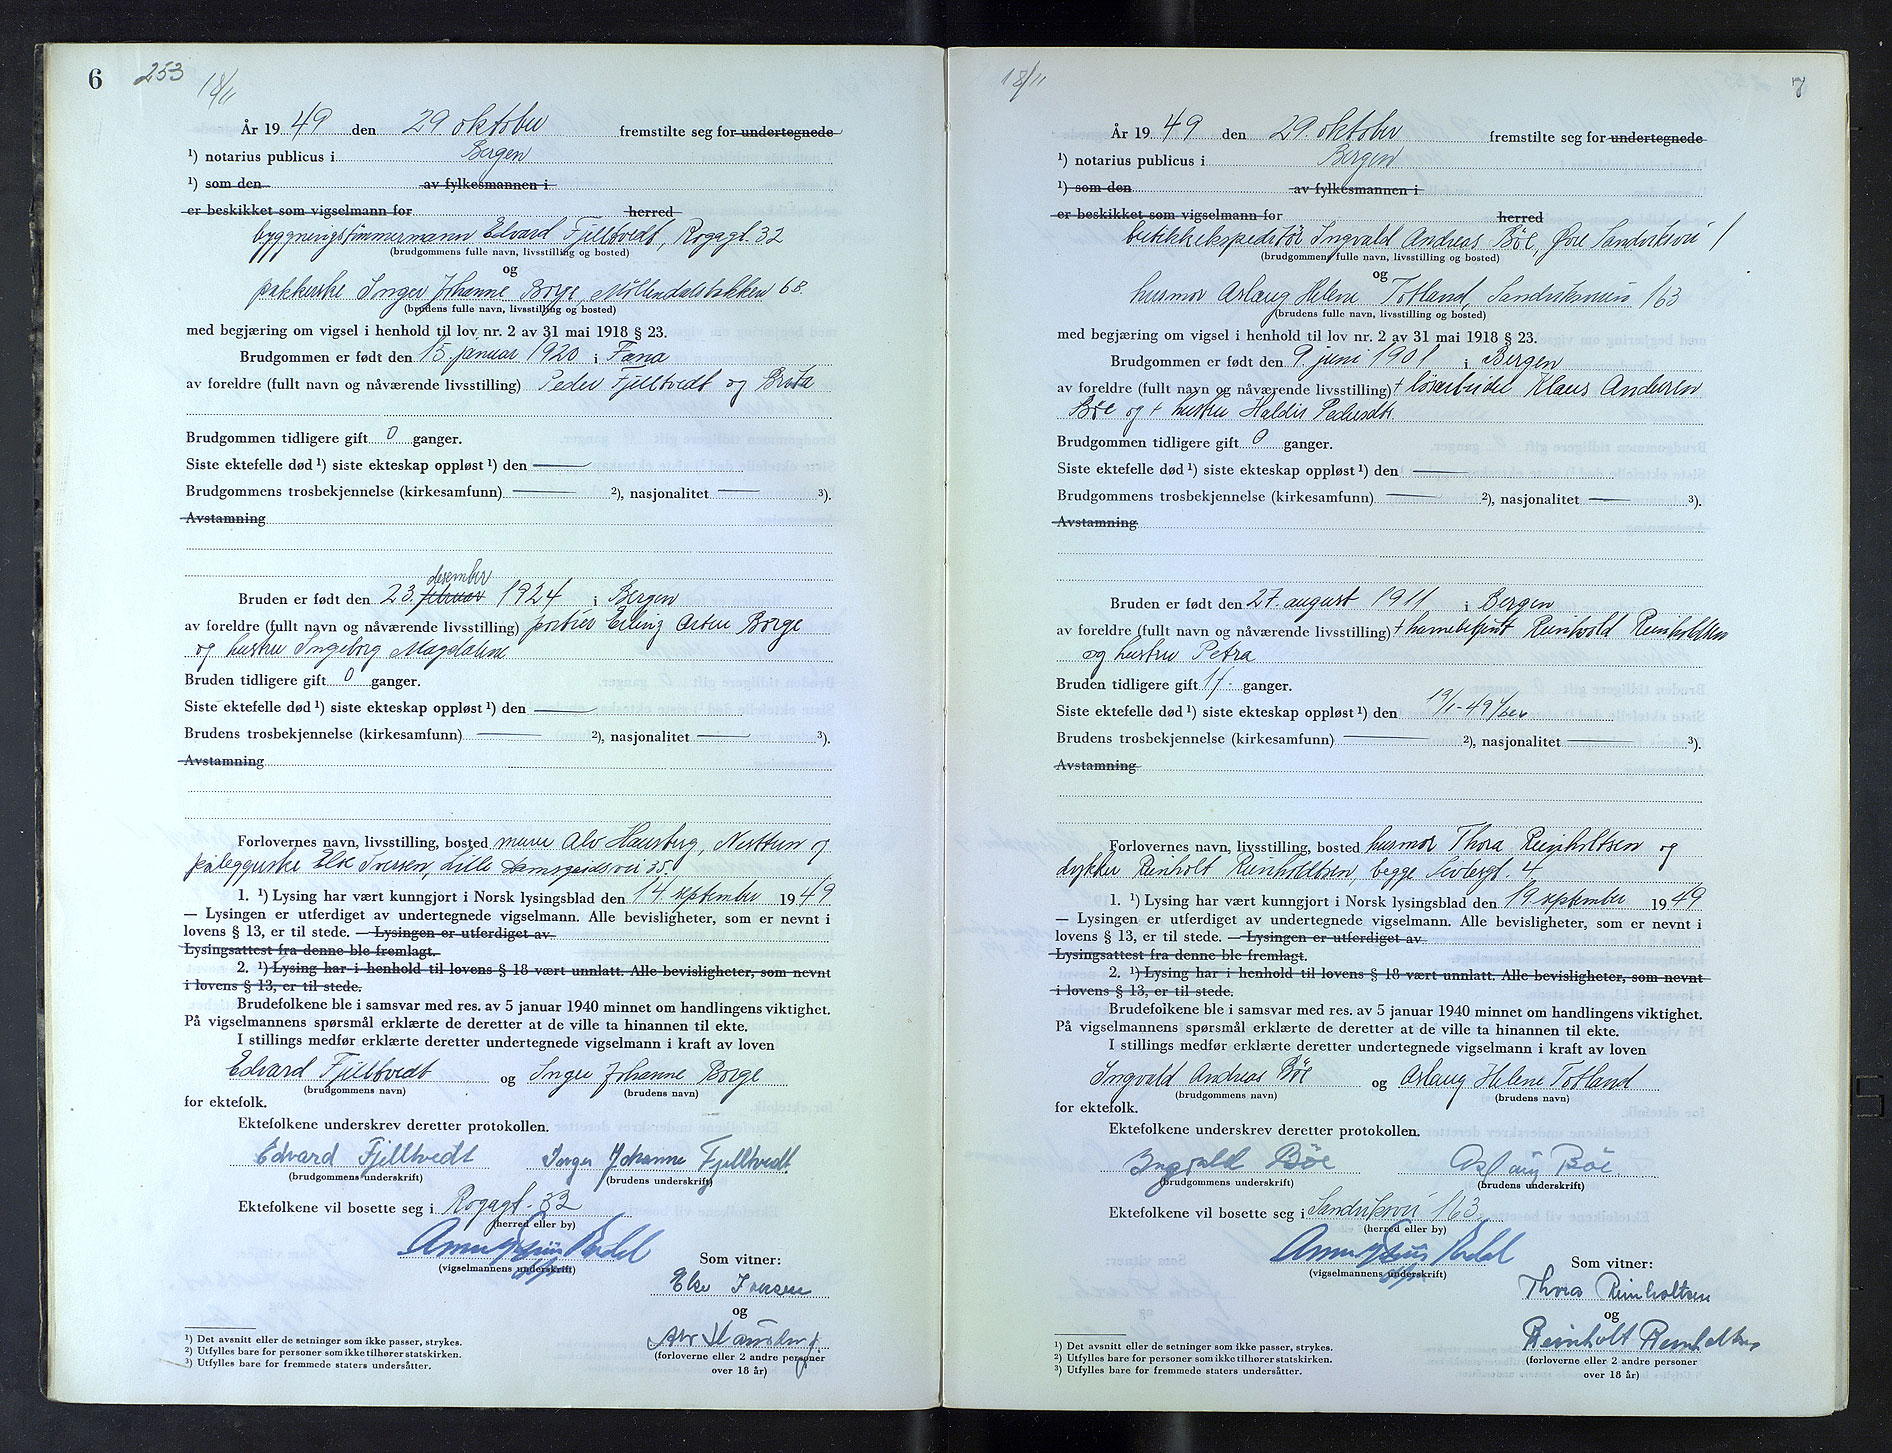 6
253
18/11
År 1949 den 29 oktober fremstilte seg for undertegnede
¹) notarius publicus i Bergen
¹) som den av fylkesmannen i
er beskikket som vigselmann for herred
byggningstimmermann Edvard Fjelltvedt, Rogagt. 32
(brudgommens fulle navn, livsstilling og bosted)
og
pakkerske Inger Johanne Borge, Möllendalsbakken 68.
(brudens fulle navn, livsstilling og bosted)
med begjæring om vigsel i henhold til lov nr. 2 av 31 mai 1918 § 23.
Brudgommen er født den 15. januar 1920 i Fana
av foreldre (fullt navn og nåværende livsstilling) Peder Fjelltvedt og Brita
Brudgommen tidligere gift 0 ganger.
Siste ektefelle død ¹) siste ekteskap oppløst ¹) den —
Brudgommens trosbekjennelse (kirkesamfunn) — ²), nasjonalitet — ³).
Avstamning
desember
Bruden er født den 23. februar 1924 i Bergen
av foreldre (fullt navn og nåværende livsstilling) portier Erling Borge
og hustru Ingeborg Magdalene
Bruden tidligere gift 0 ganger.
Siste ektefelle død ¹) siste ekteskap oppløst ¹) den —
Brudens trosbekjennelse (kirkesamfunn) — ²), nasjonalitet — ³).
Avstamning
Forlovernes navn, livsstilling, bosted murer Alv Hausberg, Nesttun og
påleggerske Else Iversen, Lille Damsgaardsvei 35.
1. ¹) Lysing har vært kunngjort i Norsk lysingsblad den 14. september 1949
— Lysingen er utferdiget av undertegnede vigselmann. Alle bevisligheter, som er nevnt i
lovens § 13, er til stede. — Lysingen er utferdiget av
Lysingsattest fra denne ble fremlagt.
2. ¹) Lysing har i henhold til lovens § 18 vært unnlatt. Alle bevisligheter, som nevnt
i lovens § 13, er til stede.
Brudefolkene ble i samsvar med res. av 5 januar 1940 minnet om handlingens viktighet.
På vigselmannens spørsmål erklærte de deretter at de ville ta hinannen til ekte.
I stillings medfør erklærte deretter undertegnede vigselmann i kraft av loven
Edvard Fjelltvedt og Inger Johanne Borge
(brudgommens navn) (brudens navn)
for ektefolk.
Ektefolkene underskrev deretter protokollen.
Edvard Fjelltvedt Inger Johanne Fjelltvedt
(brudgommens underskrift) (brudens underskrift)
Ektefolkene vil bosette seg i Rogagt. 32
(herred eller by)
(vigselmannens underskrift)
Som vitner:
Else Iversen
og
Alv Hausberg
(forloverne eller 2 andre personer
over 18 år)
¹) Det avsnitt eller de setninger som ikke passer, strykes.
²) Utfylles bare for personer som ikke tilhører statskirken.
³) Utfylles bare for fremmede staters undersåtter.
18/11
7
År 1949 den 29. oktober fremstilte seg for undertegnede
¹) notarius publicus i Bergen
¹) som den av fylkesmannen i
er beskikket som vigselmann for herred
butikkekspeditör Ingvald Andreas Böe, Øvre Sandviksvei 1
(brudgommens fulle navn, livsstilling og bosted)
og
husmor Aslaug Helene Totland, Sandviksveien 163
(brudens fulle navn, livsstilling og bosted)
med begjæring om vigsel i henhold til lov nr. 2 av 31 mai 1918 § 23.
Brudgommen er født den 9. juni 1901 i Bergen
av foreldre (fullt navn og nåværende livsstilling) + lösarbeider Klaus Andersen
Böe og + hustru Haldis Pedersdtr
Brudgommen tidligere gift 0 ganger.
Siste ektefelle død ¹) siste ekteskap oppløst ¹) den —
Brudgommens trosbekjennelse (kirkesamfunn) — ²), nasjonalitet — ³).
Avstamning
Bruden er født den 27. august 1911 i Bergen
av foreldre (fullt navn og nåværende livsstilling) + havnebetjent Reinhold Reinholdtsen
og hustru Petra
Bruden tidligere gift 1 ganger.
Siste ektefelle død ¹) siste ekteskap oppløst ¹) den 19/1-49
Brudens trosbekjennelse (kirkesamfunn) — ²), nasjonalitet — ³).
Avstamning
Forlovernes navn, livsstilling, bosted husmor Thora Reinholtsen og
dykker Reinholt Reinholdtsen, begge 4
1. ¹) Lysing har vært kunngjort i Norsk lysingsblad den 19 september 1949
— Lysingen er utferdiget av undertegnede vigselmann. Alle bevisligheter, som er nevnt i
lovens § 13, er til stede. — Lysingen er utferdiget av
Lysingsattest fra denne ble fremlagt.
2. ¹) Lysing har i henhold til lovens § 18 vært unnlatt. Alle bevisligheter, som nevnt
i lovens § 13, er til stede.
Brudefolkene ble i samsvar med res. av 5 januar 1940 minnet om handlingens viktighet.
På vigselmannens spørsmål erklærte de deretter at de ville ta hinannen til ekte.
I stillings medfør erklærte deretter undertegnede vigselmann i kraft av loven
Ingvald Andreas Böe og Aslaug Helene Totland
(brudgommens navn) (brudens navn)
for ektefolk.
Ektefolkene underskrev deretter protokollen.
Ingvald Böe Aslaug Böe
(brudgommens underskrift) (brudens underskrift)
Ektefolkene vil bosette seg i Sandviksvei 163
(herred eller by)
(vigselmannens underskrift)
Som vitner:
Thora Reinholtsen
og
Reinholt Reinholtsen
(forloverne eller 2 andre personer
over 18 år)
¹) Det avsnitt eller de setninger som ikke passer, strykes.
²) Utfylles bare for personer som ikke tilhører statskirken.
³) Utfylles bare for fremmede staters undersåtter.